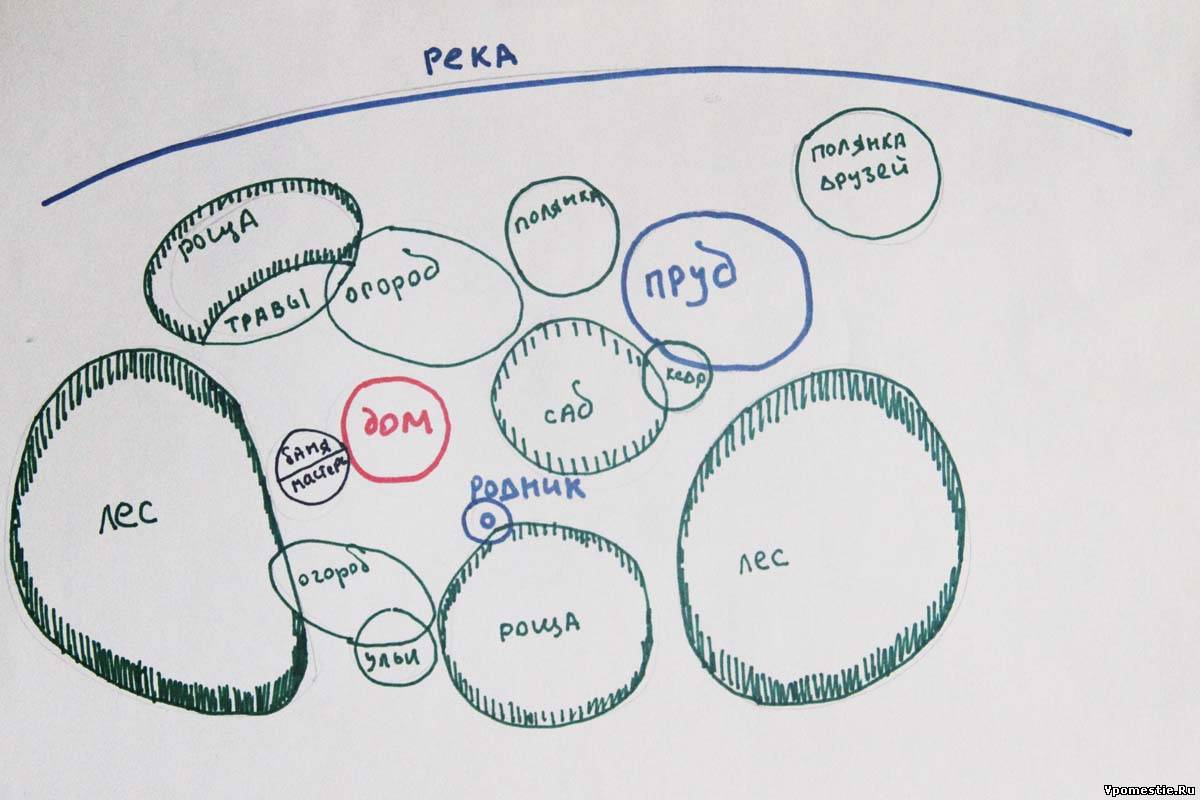 РЕКА
ПОЛЯНКА
ДРУЗЕЙ
РОЩА
ПОЛЯНКА
ТРАВЫ
ОГОРОД
ПРУД
КЕДР
САД
ДОМ
БАНЯ
МАСТЕРЬ
РОДНИК
ЛЕС
ОГОРОД
УЛЬИ
РОЩА
ЛЕС
Vpomestie.Ru